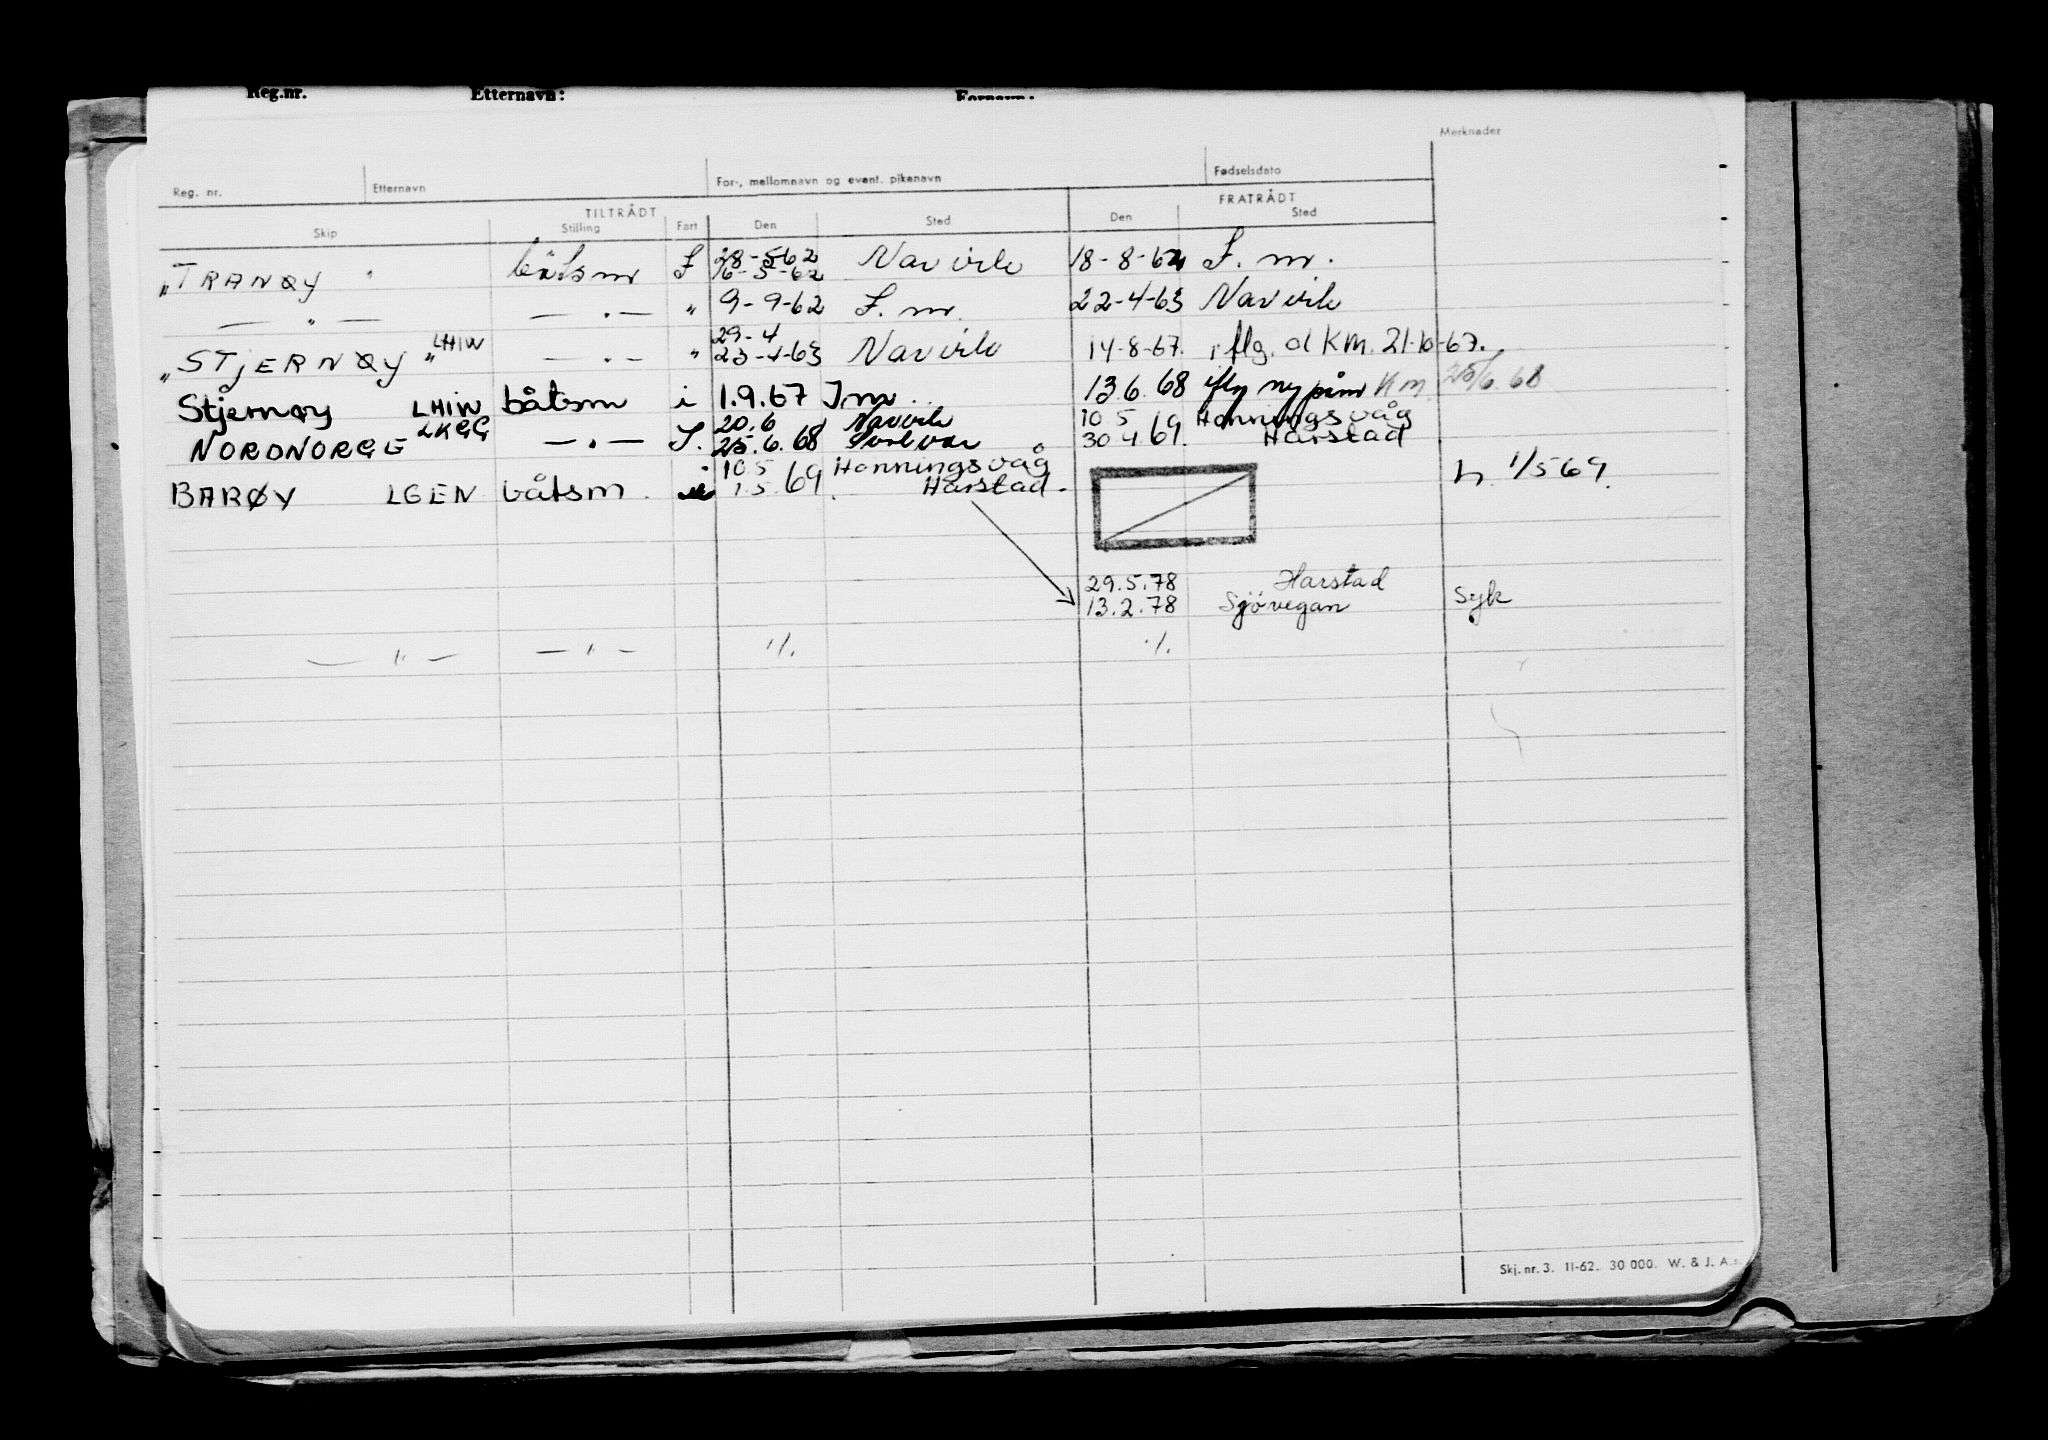 Reg.nr. Etternavn: Fornavn:
Merknader
Reg. nr. Etternavn For-, mellomnavn og event. pikenavn Fødselsdato
TILTRÅDT FRATRÅDT
Skip Stilling Fart Den Sted Den Sted
28-5-62
"TRANØY" båtsm I 16-5-62 Narvik 18-8-62 I. m.
— " — — " — " 9-9-62 I. m. 22-4-63 Narvik
29-4
"STJERNØY" LHIW — " — " 23-4-63 Narvik 14-8-67. iflg. KM. 21-10-67.
Stjernøy LHIW båtsm i 1.9.67 I m. 13.6.68 iflg KM 25/6.68
20.6 Narvik 10 5 Honningsvåg
NORDNORGE LKGG — " — I. 25.6.68 Svolvær 30 4 69. Harstad
10 5 Honningsvåg
BARØY LGEN båtsm. i 1.5.69. Harstad. h. 1/5 69.
29.5.78 Harstad
13.2.78 Sjövegan Syk
— " — — " — ./. ./.
Skj. nr. 3. 11-62. 30 000. W. & J. A.